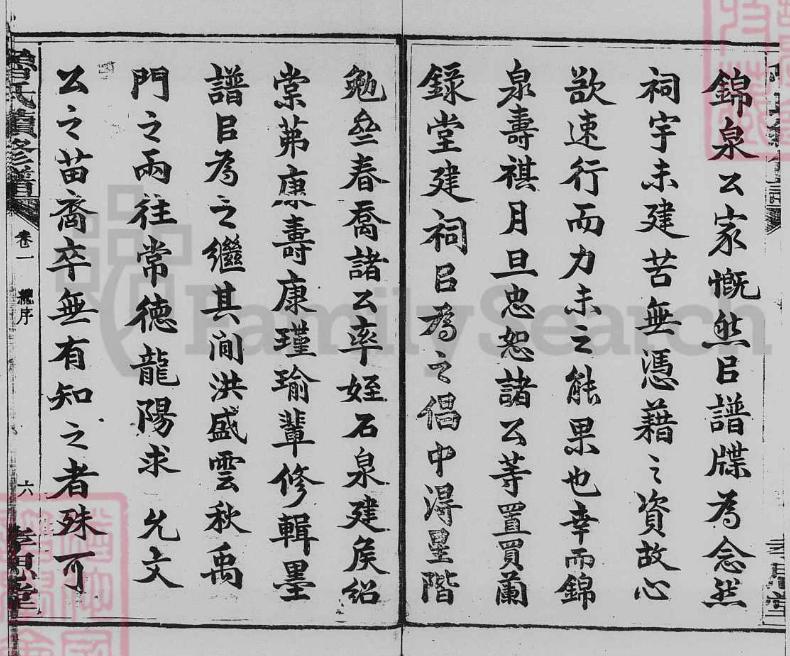 錦泉公家慨然㠯譜牒為念然
祠宇未建苦無憑藉之資故心
欲速行而力未之能果也幸而錦
泉壽祺月旦忠恕諸公等置買蘭
錄堂建祠㠯為之倡中淂星階
勉叄春喬諸公率姪石泉建矦紹
棠苐康壽康瑾瑜輩修輯墨
譜㠯為之繼其間洪盛雲秋禹
門之兩往常德龍陽求 允文
公之苗裔卒無有知之者殊可
魯氏續修譜 卷一 舊序 六 孝思堂
FamilySearch